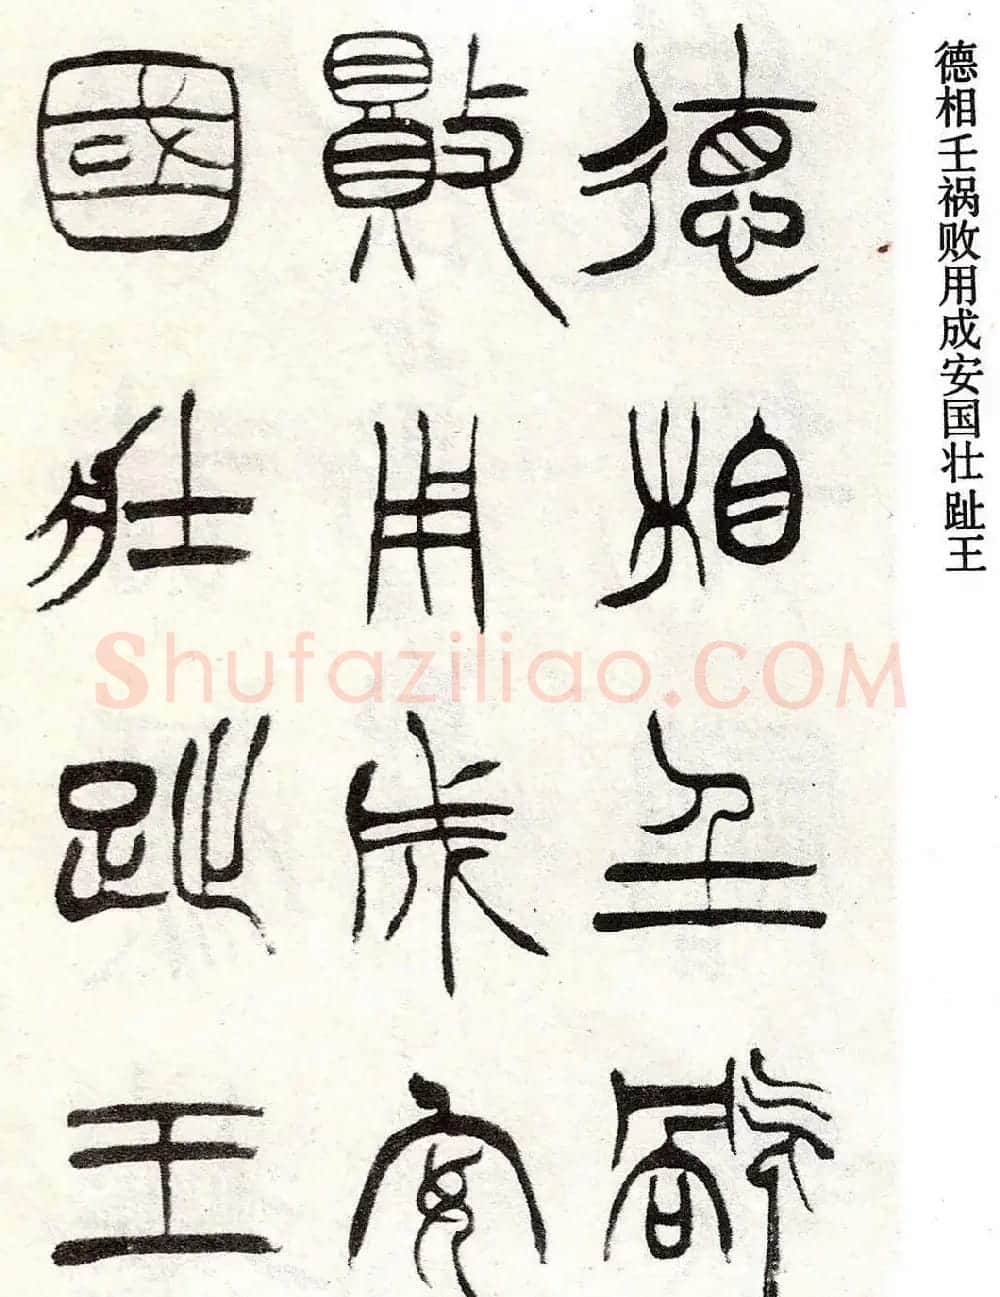 德相壬祸败用成安国壮趾王
德相壬禍
敗用成安
國壯趾王
Shufaziliao.COM